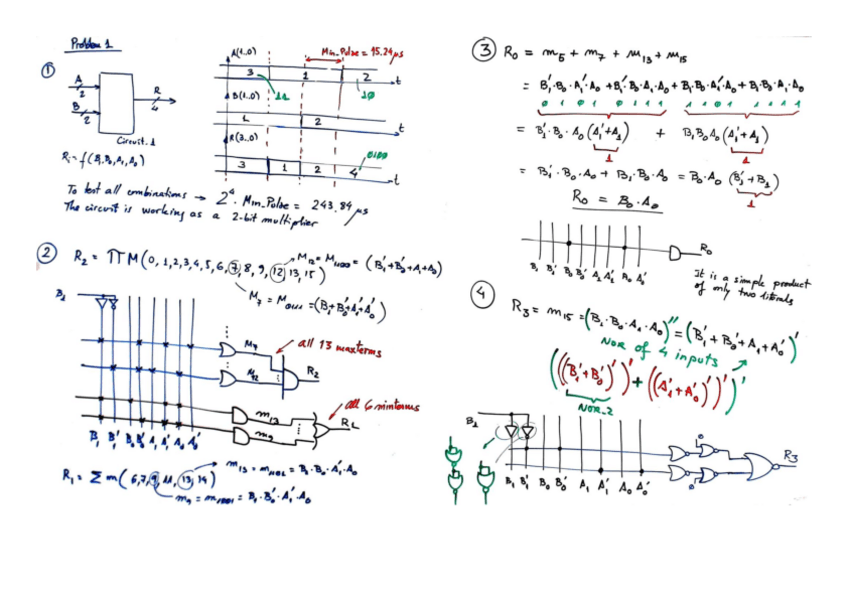 Problem 1
①
A
2
B
2
R
4
Circuit_1
R = f(B₁, B₀, A₁, A₀)
A(1..0)
Min_Pulse = 15.24 μs
3
1
2
t
11
10
B(1..0)
1
2
t
R(3..0)
0100
3
1
2
4
t
To test all combinations → 2⁴ · Min_Pulse = 243.84 μs
The circuit is working as a 2-bit multiplier
②
R₂ = ΠM(0, 1, 2, 3, 4, 5, 6, 7, 8, 9, 12, 13, 15)
M₁₂ = M₁₁₀₀ = (B₁' + B₀' + A₁ + A₀)
M₇ = M₀₁₁₁ = (B₁ + B₀' + A₁' + A₀')
B₁
M₇
all 13 maxterms
M₁₂
R₂
m₁₃
all 6 minterms
m₉
R₁
B₁ B₁' B₀ B₀' A₁ A₁' A₀ A₀'
R₁ = Σm(6, 7, 9, 11, 13, 14)
m₁₃ = m₁₁₀₁ = B₁ · B₀ · A₁' · A₀
m₉ = m₁₀₀₁ = B₁ · B₀' · A₁' · A₀
③
R₀ = m₅ + m₇ + m₁₃ + m₁₅
= B₁' · B₀ · A₁' · A₀ + B₁' · B₀ · A₁ · A₀ + B₁ · B₀ · A₁' · A₀ + B₁ · B₀ · A₁ · A₀
0 1 0 1 0 1 1 1 1 1 0 1 1 1 1 1
= B₁' · B₀ · A₀ (A₁' + A₁) + B₁ B₀ A₀ (A₁' + A₁)
1 1
= B₁' · B₀ · A₀ + B₁ · B₀ · A₀ = B₀ · A₀ (B₁' + B₁)
1
R₀ = B₀ · A₀
R₀
B₁ B₁' B₀ B₀' A₁ A₁' A₀ A₀'
It is a simple product
of only two literals
④
R₃ = m₁₅ = (B₁ · B₀ · A₁ · A₀)'' = (B₁' + B₀' + A₁' + A₀')'
NOR of 4 inputs
(((B₁' + B₀')')' + ((A₁' + A₀')')')'
NOR_2
B₁
0
R₃
0
B₁ B₁' B₀ B₀' A₁ A₁' A₀ A₀'